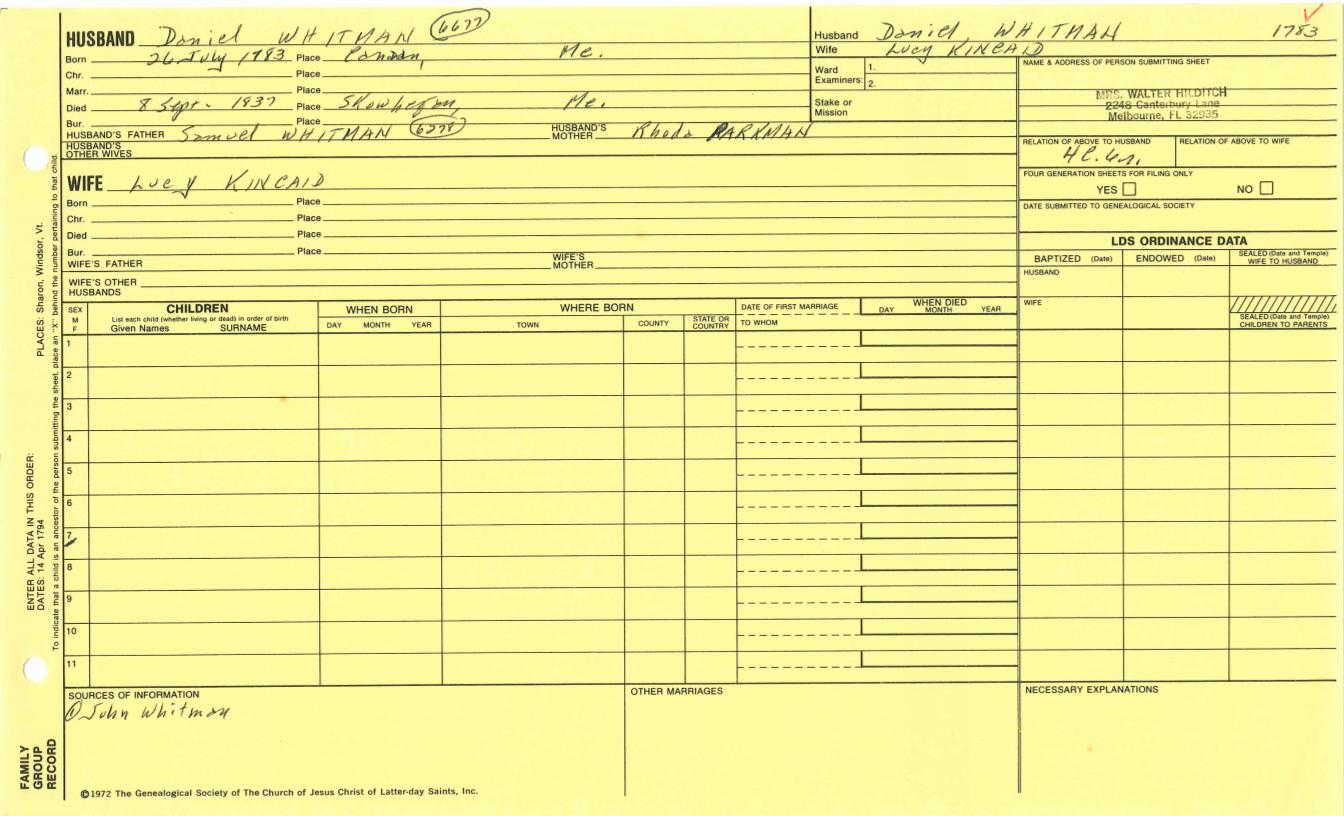 HUSBAND Daniel WHITMAN 6677
Born 26 July 1783 Place Me.
Chr. Place
Marr. Place
Died 8 Sept. 1837 Place Skowhegan, Me.
Bur. Place
HUSBAND'S FATHER Samuel WHITMAN HUSBAND'S MOTHER Rhoda PARKMAN
HUSBAND'S OTHER WIVES
Husband Daniel WHITMAN 1783
Wife Lucy KINCAID
Ward Examiners: 1.
2.
Stake or Mission
NAME & ADDRESS OF PERSON SUBMITTING SHEET
MRS. WALTER HILDITCH
2348 Canterbury Lane
Melbourne, FL 32935
RELATION OF ABOVE TO HUSBAND RELATION OF ABOVE TO WIFE
FOUR GENERATION SHEETS FOR FILING ONLY
YES NO
DATE SUBMITTED TO GENEALOGICAL SOCIETY
WIFE Lucy KINCAID
Born Place
Chr. Place
Died Place
Bur. Place
WIFE'S FATHER WIFE'S MOTHER
WIFE'S OTHER HUSBANDS
LDS ORDINANCE DATA
BAPTIZED (Date) ENDOWED (Date) SEALED (Date and Temple) WIFE TO HUSBAND
HUSBAND
WIFE
SEALED (Date and Temple) CHILDREN TO PARENTS
SEX M F
CHILDREN
List each child (whether living or dead) in order of birth
Given Names SURNAME
WHEN BORN
DAY MONTH YEAR
WHERE BORN
TOWN COUNTY STATE OR COUNTRY
DATE OF FIRST MARRIAGE
TO WHOM
WHEN DIED
DAY MONTH YEAR
1
2
3
4
5
6
7
8
9
10
11
SOURCES OF INFORMATION
① John Whitman
OTHER MARRIAGES
NECESSARY EXPLANATIONS
©1972 The Genealogical Society of The Church of Jesus Christ of Latter-day Saints, Inc.
FAMILY GROUP RECORD
ENTER ALL DATA IN THIS ORDER:
DATES: 14 Apr 1794 PLACES: Sharon, Windsor, Vt.
To indicate that a child is an ancestor of the person submitting the sheet, place an "X" behind the number pertaining to that child.